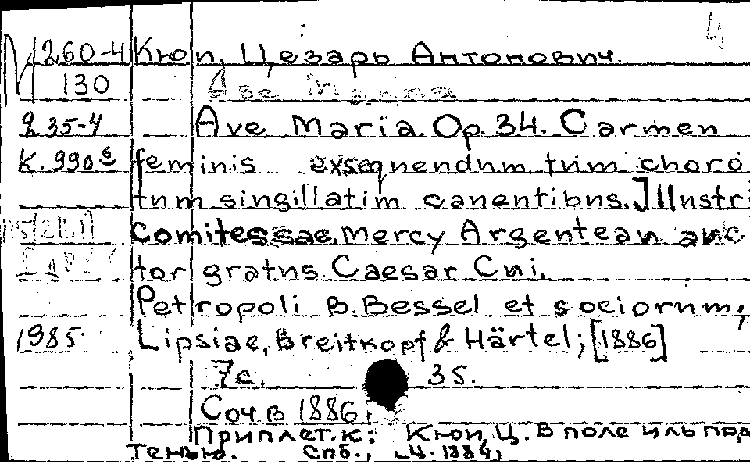 М260-4 Кюи, Цезарь Антонович.
130
235-4 Ave Maria. Op. 34. Carmen
К. 990 feminis exsequendum tum choro
tum singillatim canentibus. Illustri
Comitessae Mercy Argentean auc
tor gratus Caesar Cui.
Petropoli B. Bessel et sociorum;
1985 Lipsiae, Breitkopf & Härtel; [1886]
7с. 35.
Соч. в 1886.
Приплет. к: Кюи, Ц. В поле иль под
тенью. Спб., 1884,